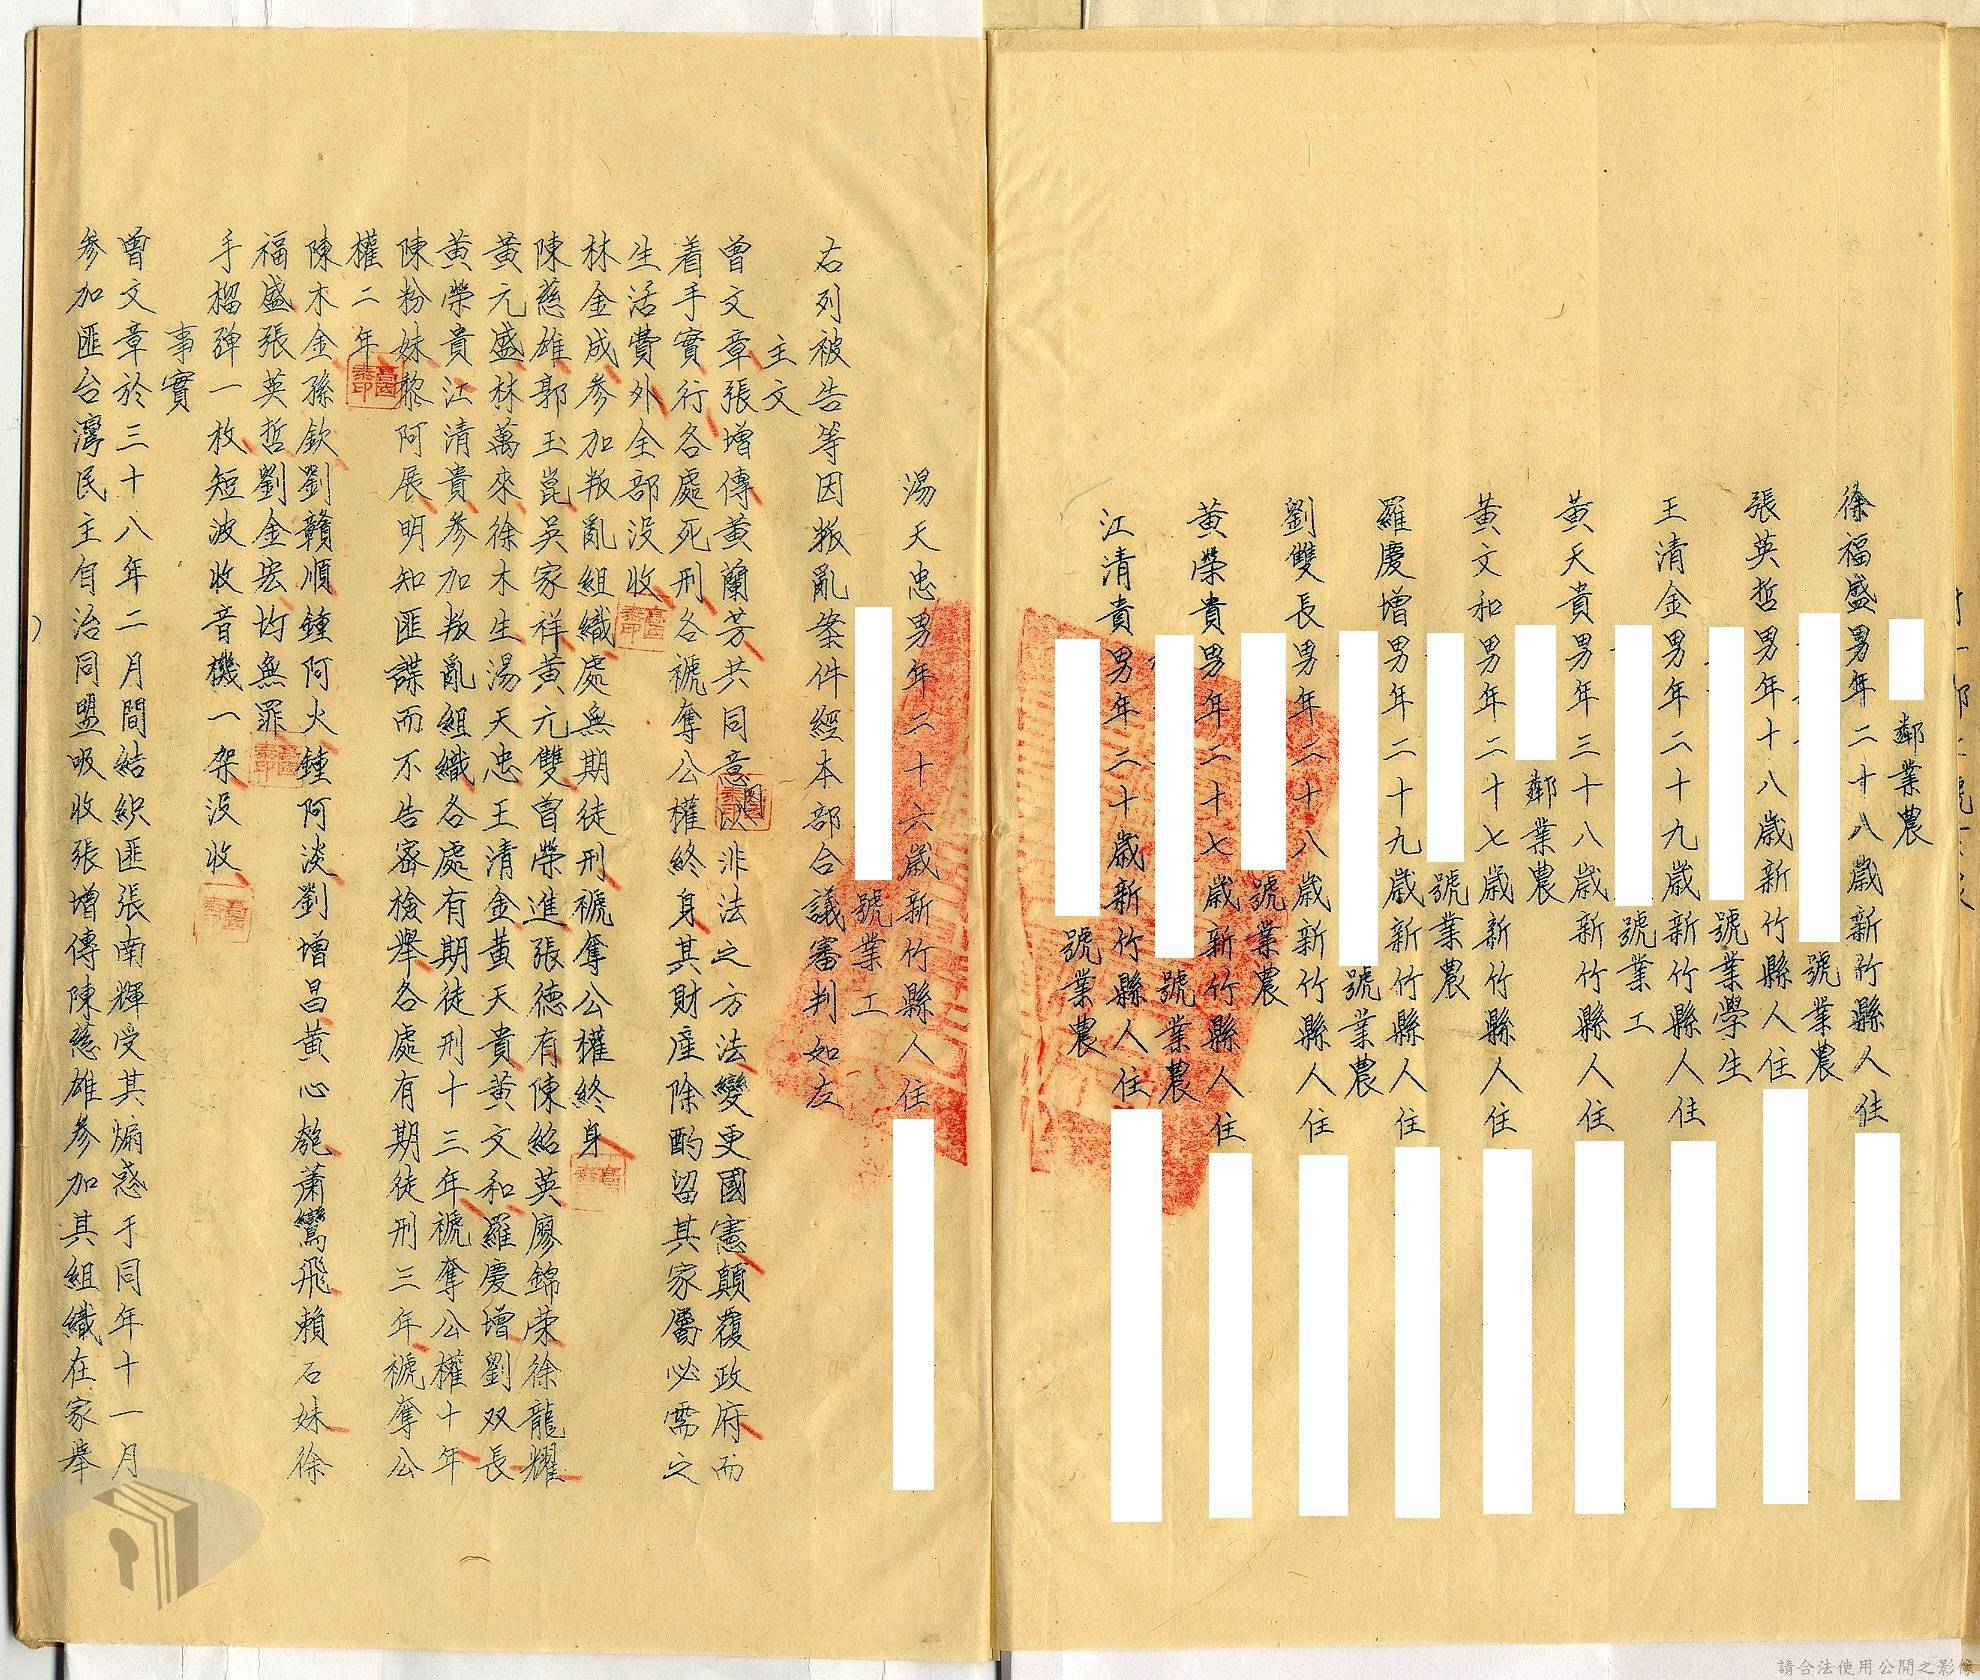 鄰業農
徐福盛男年二十八歲新竹縣人住
號業農
張英哲男年十八歲新竹縣人住
號業學生
王清金男年二十九歲新竹縣人住
號業工
黃天貴男年三十八歲新竹縣人住
鄰業農
黃文和男年二十七歲新竹縣人住
號業農
羅慶增男年二十九歲新竹縣人住
號業農
劉雙長男年二十八歲新竹縣人住
號業農
黃榮貴男年二十七歲新竹縣人住
號業農
江清貴男年二十歲新竹縣人住
號業農
湯天忠男年二十六歲新竹縣人住
號業工
右列被告等因叛亂案件經本部合議審判如左
主文
曾文章張增傳黃蘭芳共同意圖以非法之方法變更國憲顛覆政府而
着手實行各處死刑各褫奪公權終身其財產除酌留其家屬必需之
生活費外全部没收
林金成參加叛亂組織處無期徒刑褫奪公權終身
陳慈雄郭玉崑吳家祥黃元雙曾榮進張德有陳紹英廖錦荣徐龍耀
黃元盛林萬來徐木生湯天忠王清金黃天貴黃文和羅慶增劉双長
黃榮貴江清貴參加叛亂組織各處有期徒刑十三年褫奪公權十年
陳粉妹黎阿展明知匪諜而不告密檢舉各處有期徒刑三年褫奪公
權二年
陳木金孫欽劉贛順鍾阿火鍾阿淡劉增昌黃心匏蕭鸞飛賴石妹徐
福盛張英哲劉金宏均無罪
手榴弹一枚短波收音機一架没收
事實
曾文章於三十八年二月間結織匪張南輝受其煽惑于同年十一月
參加匪台灣民主自治同盟吸收張增傳陳慈雄參加其組織在家舉
請合法使用公開之影像